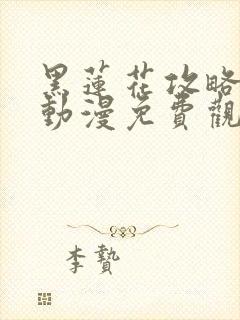 黑蓮花攻略
動漫免費觀
李贄